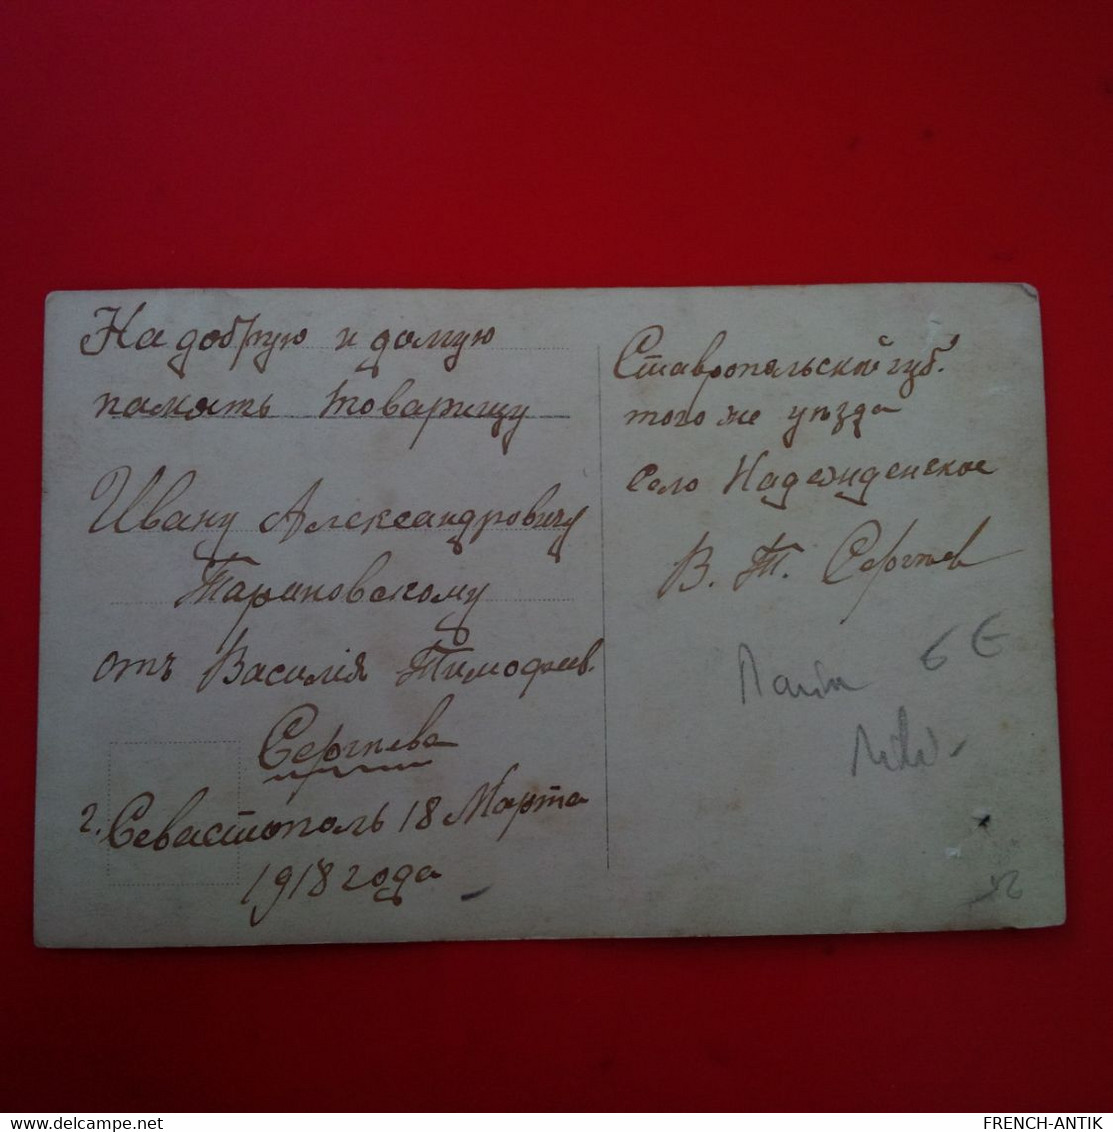 На добрую и долгую
память товарищу
Ивану Александровичу
Тарановскому
отъ Василія Тимофеев.
Сергѣева
г. Севастополь 18 Марта
1918 года
Ставропольской губ.
того же уѣзда
Село Надежденское
В. Т. Сергѣев
6 €
FRENCH-ANTIK